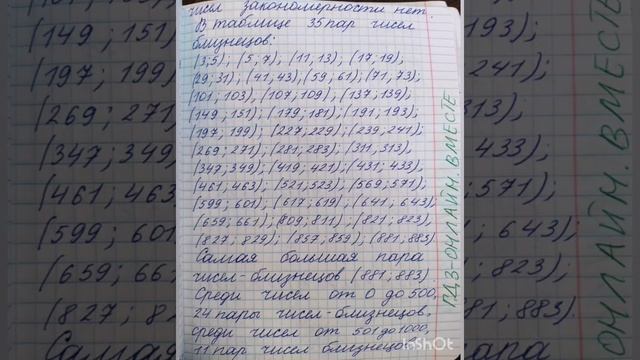 чисел закономерности нет.
В таблице 35 пар чисел
близнецов:
(3;5), (5,7), (11,13), (17,19),
(29;31), (41,43), (59;61); (71,73);
(101;103), (107;109), (137;139),
(149;151); (179;181), (191;193);
(197;199); (227;229); (239;241);
(269;271); (281;283); (311,313),
(347;349), (419;421); (431;433),
(461;463); (521,523), (569;571),
(599;601), (617;619), (641;643),
(659;661), (809;811), (821;823),
(827;829); (857,859), (881;883)
Самая большая пара
чисел-близнецов (881;883)
Среди чисел от 0 до 500,
24 пары чисел-близнецов,
среди чисел от 501 до 1000,
11 пар чисел близнецов
ГДЗ-ОНЛАЙН. ВМЕСТЕ
InShOt
(149;151)
(197;199)
(269;271)
(347;349)
(461;463)
(599;601
(659;66
(827;82
Самая
193);
241);
313),
433);
571);
643).
823);
883).
ара
ОНЛАЙН. ВМЕСТЕ